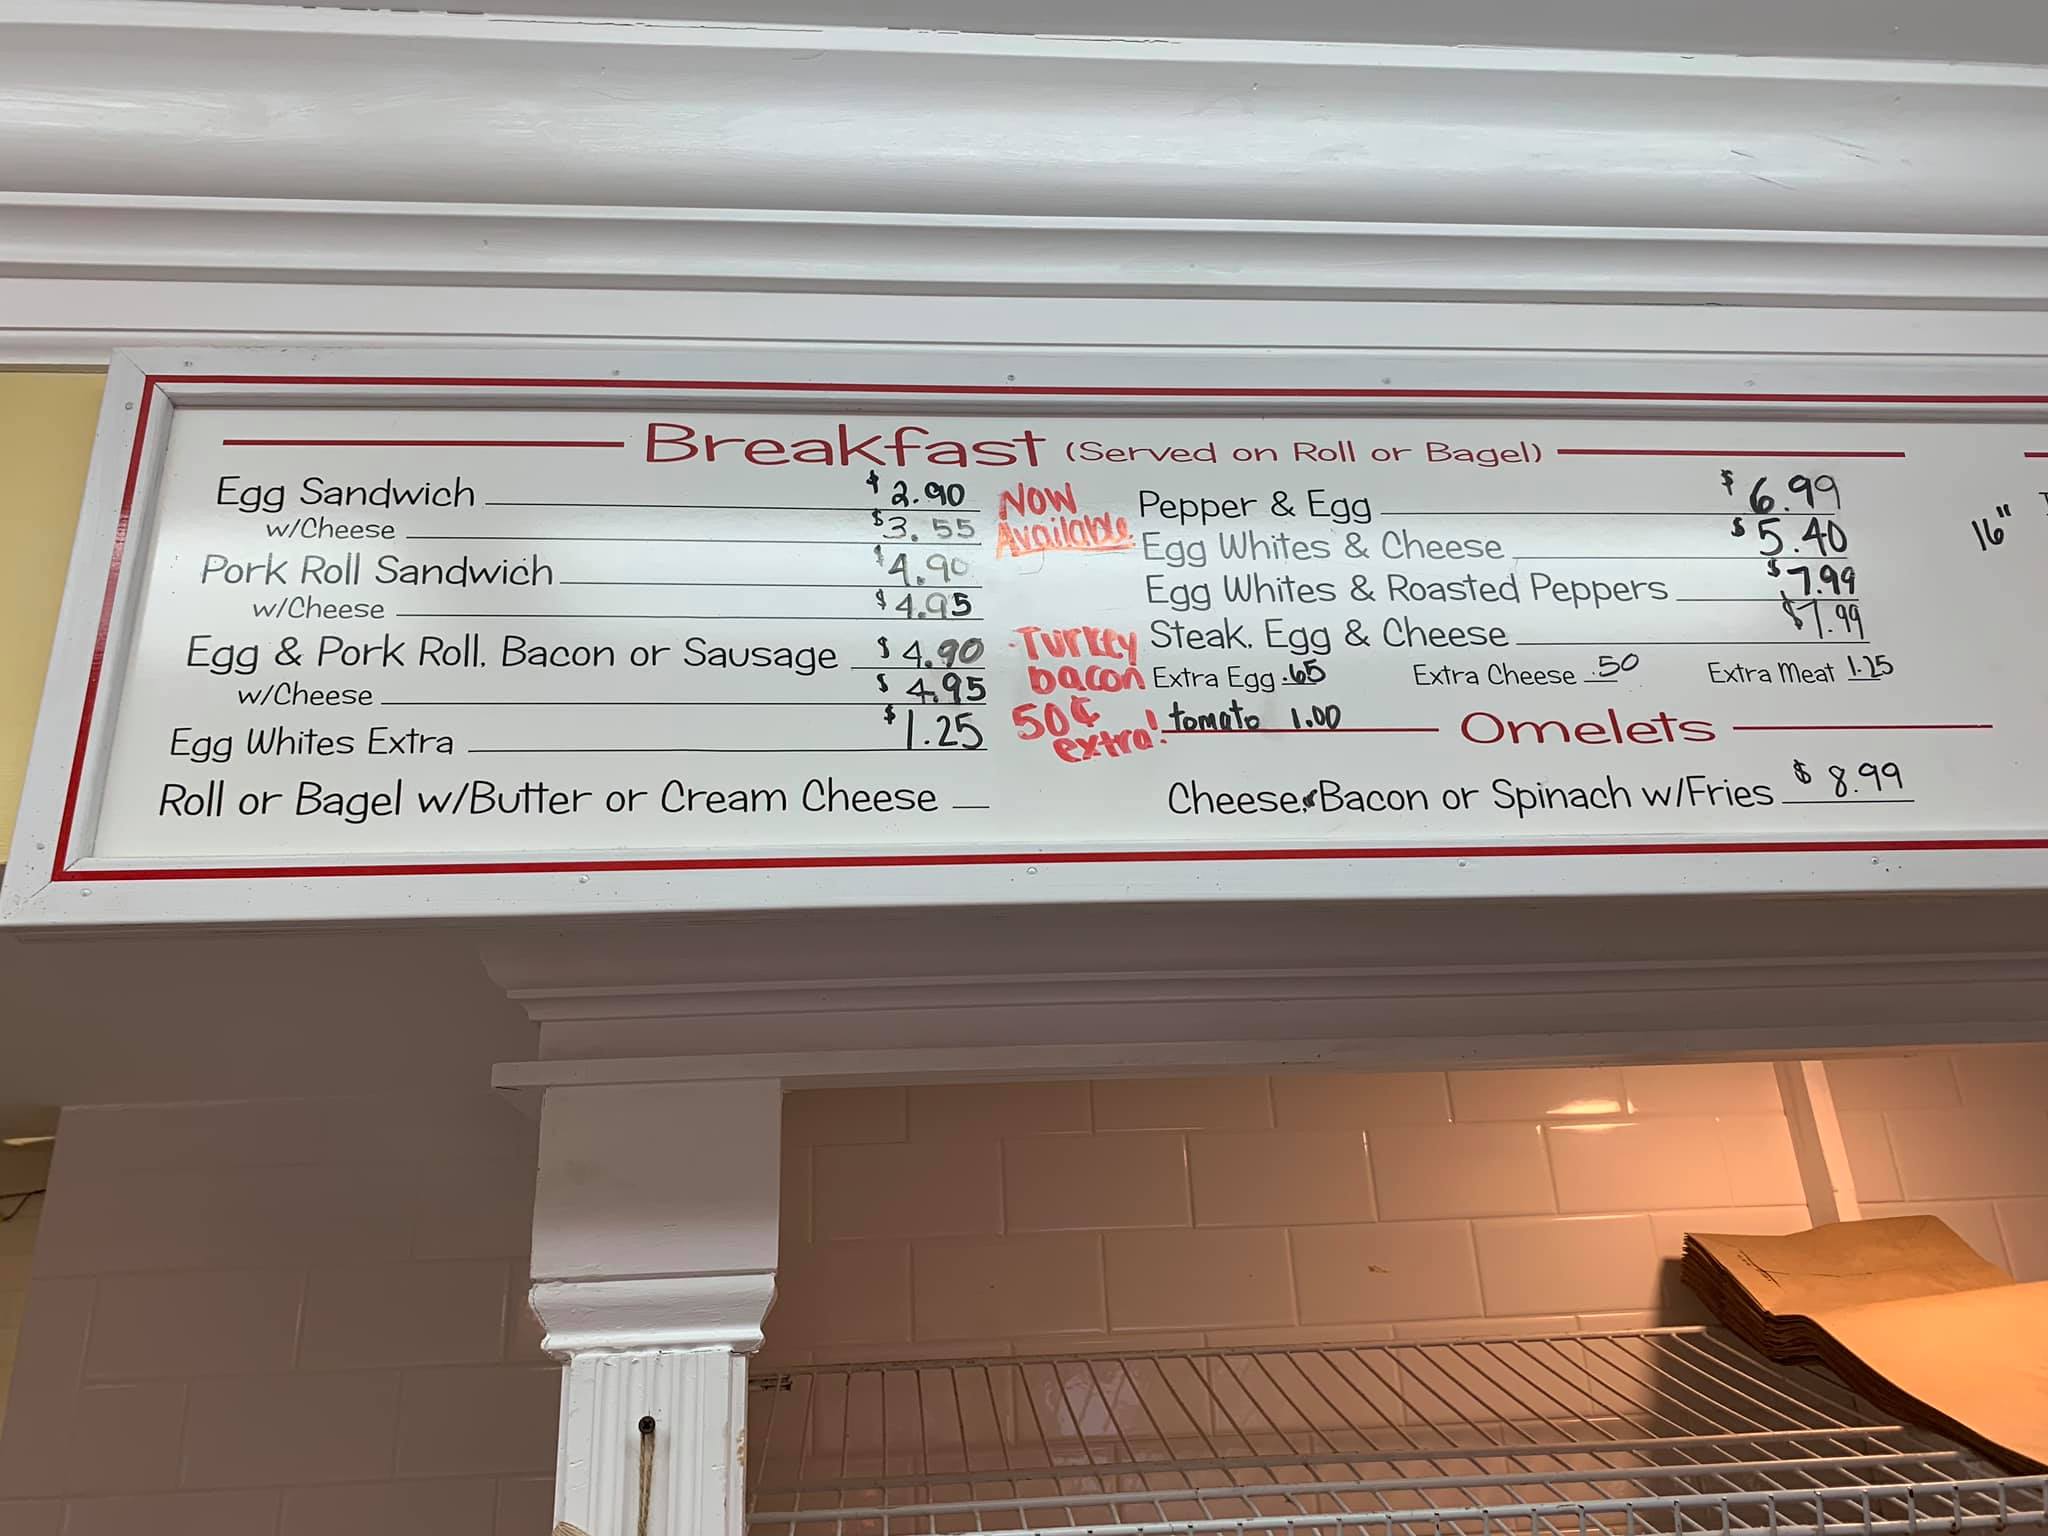 Breakfast (Served on Roll or Bagel)
Egg Sandwich $2.90
w/Cheese $3.55
Pork Roll Sandwich $4.90
w/Cheese $4.95
Egg & Pork Roll, Bacon or Sausage $4.90
w/Cheese $4.95
Egg Whites Extra $1.25
Roll or Bagel w/Butter or Cream Cheese
Now
Available
Turkey
bacon
50¢
extra!
Pepper & Egg $6.99
Egg Whites & Cheese $5.40
Egg Whites & Roasted Peppers $7.99
Steak, Egg & Cheese $7.99
Extra Egg .65 Extra Cheese .50 Extra Meat 1.25
tomato 1.00
Omelets
Cheese, Bacon or Spinach w/Fries $8.99
16"